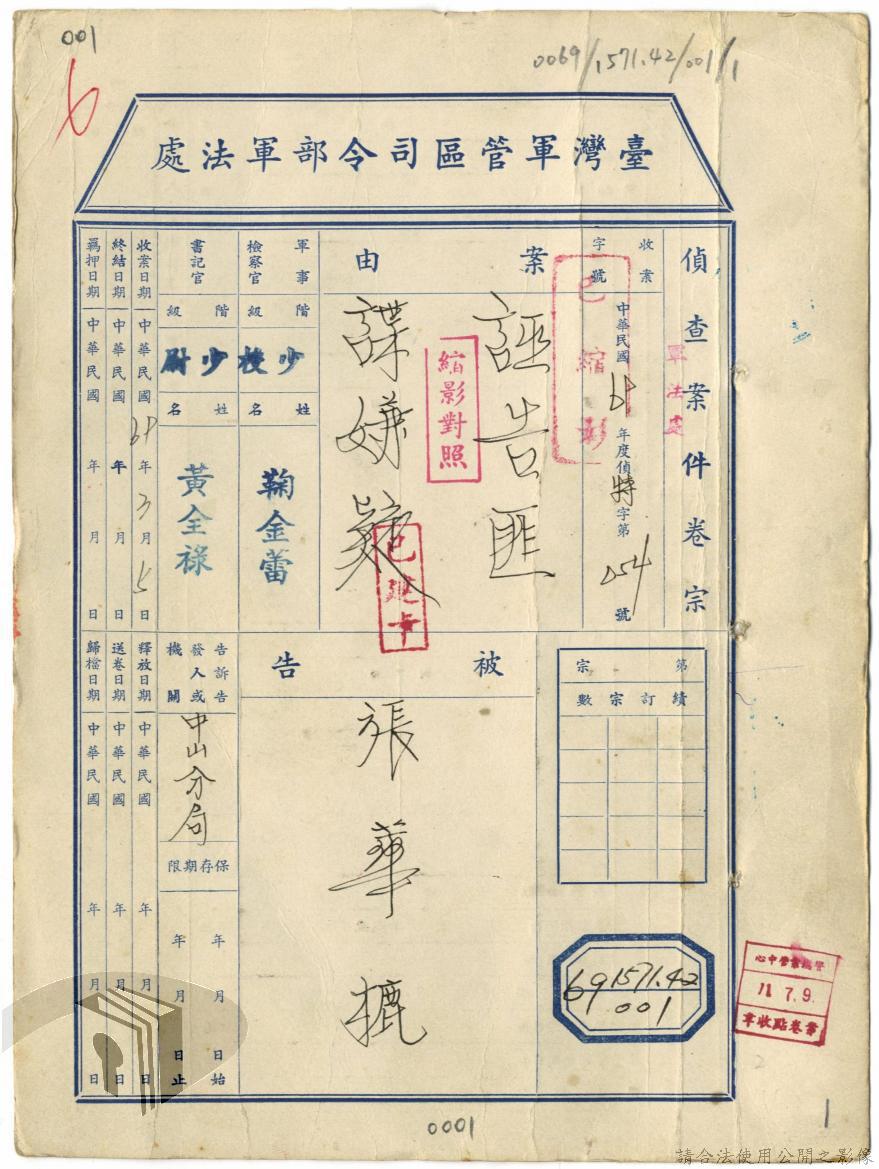 001
0069/1571.42/001/1
6
臺灣軍管區司令部軍法處
偵查案件卷宗
軍法處
收案字號
中華民國69年度偵特字第054號
已縮影
案由
誣告匪
諜嫌疑
縮影對照
已建卡
軍事檢察官
階級
少校
姓名
鞠金蕾
書記官
階級
少尉
姓名
黃全祿
收案日期 中華民國69年3月5日
終結日期 中華民國 年 月 日
羈押日期 中華民國 年 月 日
第 宗
續訂宗數
被告
張華摭
告訴告發人或機關
中山分局
保存期限
年 月 日始
年 月 日止
釋放日期 中華民國 年 月 日
送卷日期 中華民國 年 月 日
歸檔日期 中華民國 年 月 日
69 1571.42
001
11 7.9.
案卷點收章
0001
1
請合法使用公開之影像